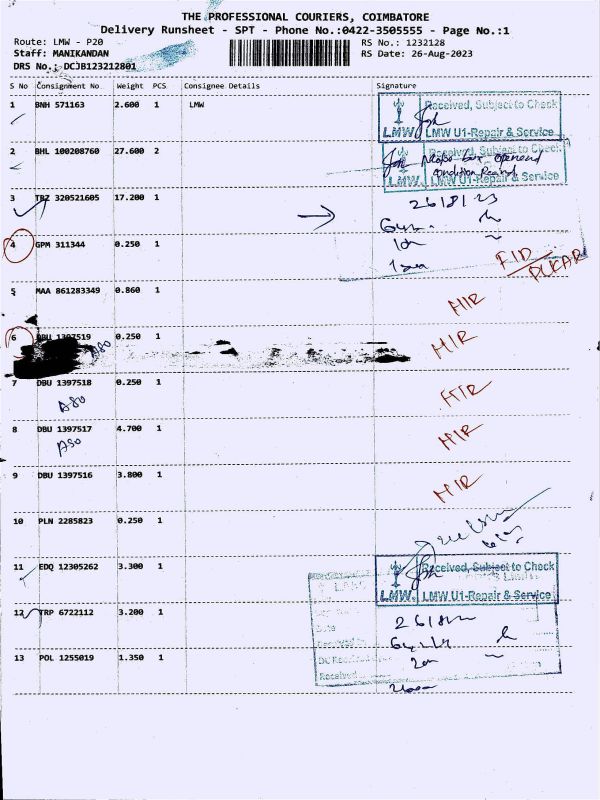 THE PROFESSIONAL COURIERS, COIMBATORE
Delivery Runsheet - SPT - Phone No.:0422-3505555 - Page No.:1
Route: LMW - P20
RS No.: 1232128
Staff: MANIKANDAN
RS Date: 26-Aug-2023
DRS No.: DCJB123212801
S No Consignment No Weight PCS Consignee Details Signature
1 BNH 571163 2.600 1 LMW
Received, Subject to Check
LMW. LMW U1-Repair & Service
2 BHL 100208760 27.600 2
Received, Subject to Check
LMW. LMW U1-Repair & Service
3 TBZ 320521605 17.200 1
26/8/23
4 GPM 311344 0.250 1
FID
5 MAA 861283349 0.860 1
MIR
6 DBU 1397519 0.250 1
A80
MIR
7 DBU 1397518 0.250 1
A80
MIR
8 DBU 1397517 4.700 1
A80
MIR
9 DBU 1397516 3.800 1
MIR
10 PLN 2285823 0.250 1
11 EDQ 12305262 3.300 1
Received, Subject to Check
LMW. LMW U1-Repair & Service
12 TRP 6722112 3.200 1
13 POL 1255019 1.350 1